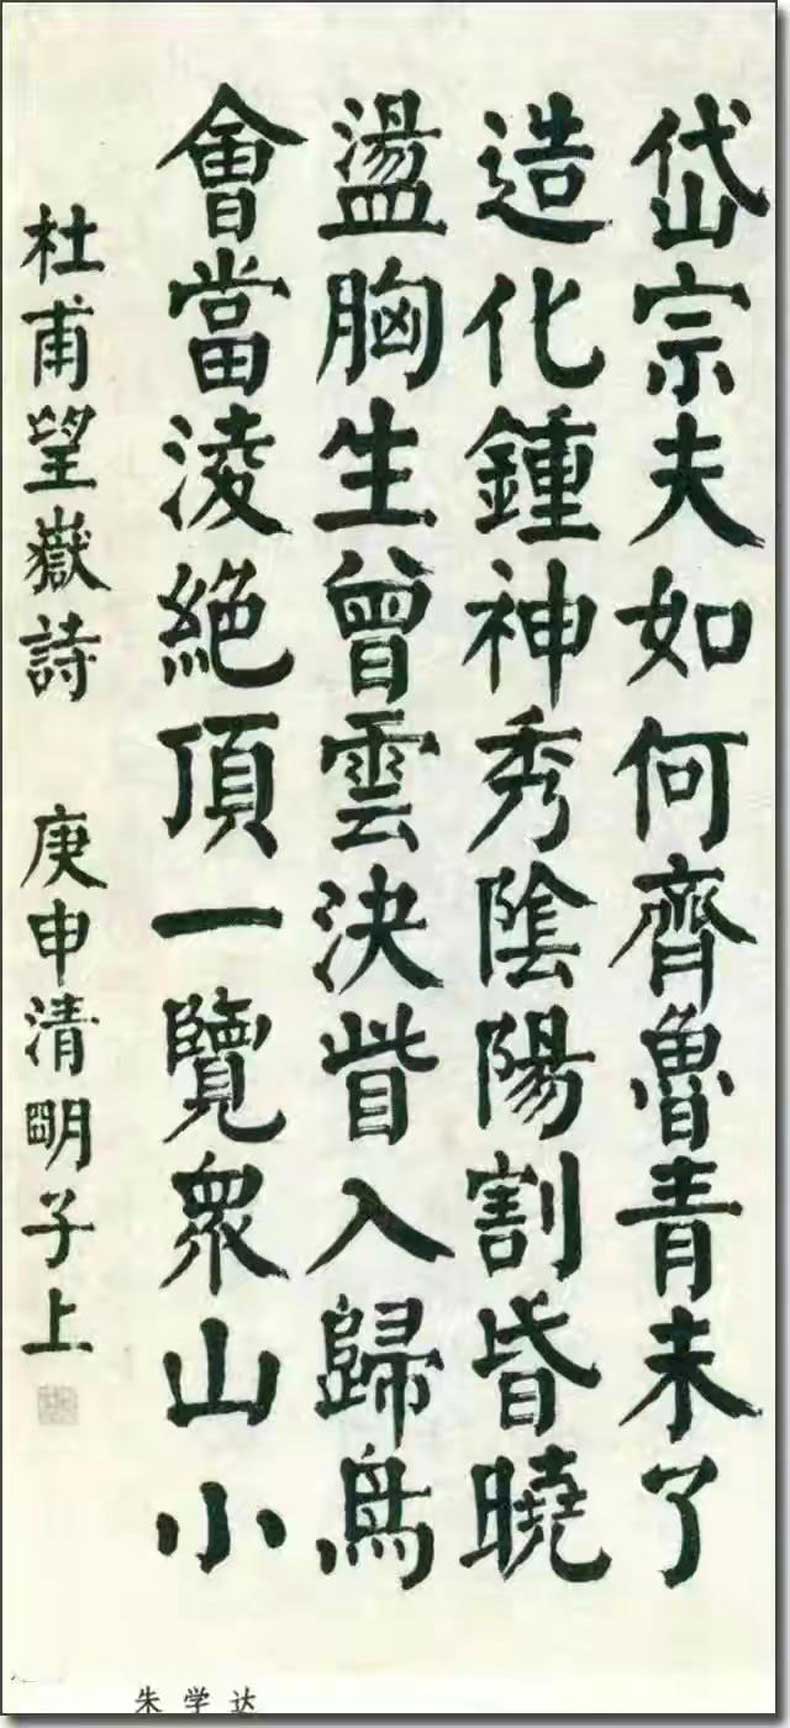 岱宗夫如何齊魯青未了
造化鍾神秀陰陽割昏曉
盪胸生曾雲決眥入歸鳥
會當淩絕頂一覽衆山小
杜甫望嶽詩 庚申清明子上
朱学达